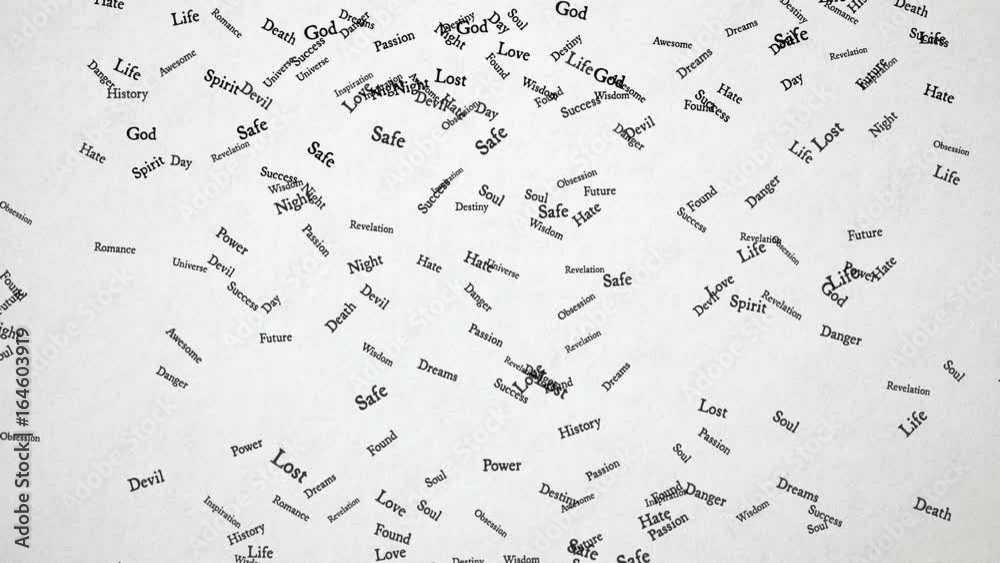 Hate
Life
Romance
Death
Success
Universe
God
Dreams
Danger
Passion
Night
Destiny
God
Day
Soul
Love
Found
Destiny
God
Life
God
Awesome
Wisdom
Found
Wisdom
Success
Awesome
Dreams
Dreams
Destiny
Safe
Romance
Death
Success
Life
Revelation
Future
Inspiration
Day
Hate
Danger
Life
Awesome
History
Spirit
Devil
Universe
Inspiration
Love
Night
Lost
Devil
Hate
Day
Obsession
Found
Success
Hate
God
Safe
Safe
Safe
Safe
Devil
Danger
Life
Lost
Night
Obsession
Hate
Spirit
Day
Revelation
Success
Wisdom
Night
Night
Success
Soul
Destiny
Soul
Obsession
Future
Safe
Hate
Wisdom
Found
Success
Danger
Life
Obsession
Romance
Power
Passion
Revelation
Revelation
Life
Obsession
Future
Universe
Devil
Night
Hate
Hate
Universe
Revelation
Safe
Love
Life
Power
Hate
God
Found
Future
Success
Day
Devil
Danger
Obsession
Devil
Spirit
Revelation
Night
Soul
Awesome
Future
Death
Passion
Revelation
Danger
Danger
Wisdom
Dreams
Safe
Success
Lost
Lost
Dreams
Soul
Revelation
Obsession
Power
Found
History
Lost
Passion
Soul
Soul
Life
Devil
Lost
Dreams
Soul
Power
Passion
Inspiration
Romance
Revelation
Love
Soul
Obsession
Destiny
Awesome
Inspiration
Found
Danger
Dreams
Wisdom
Success
Soul
Death
History
Life
Found
Love
Hate
Passion
Destiny
Wisdom
Future
Safe
Safe
Adobe Stock | #164603919